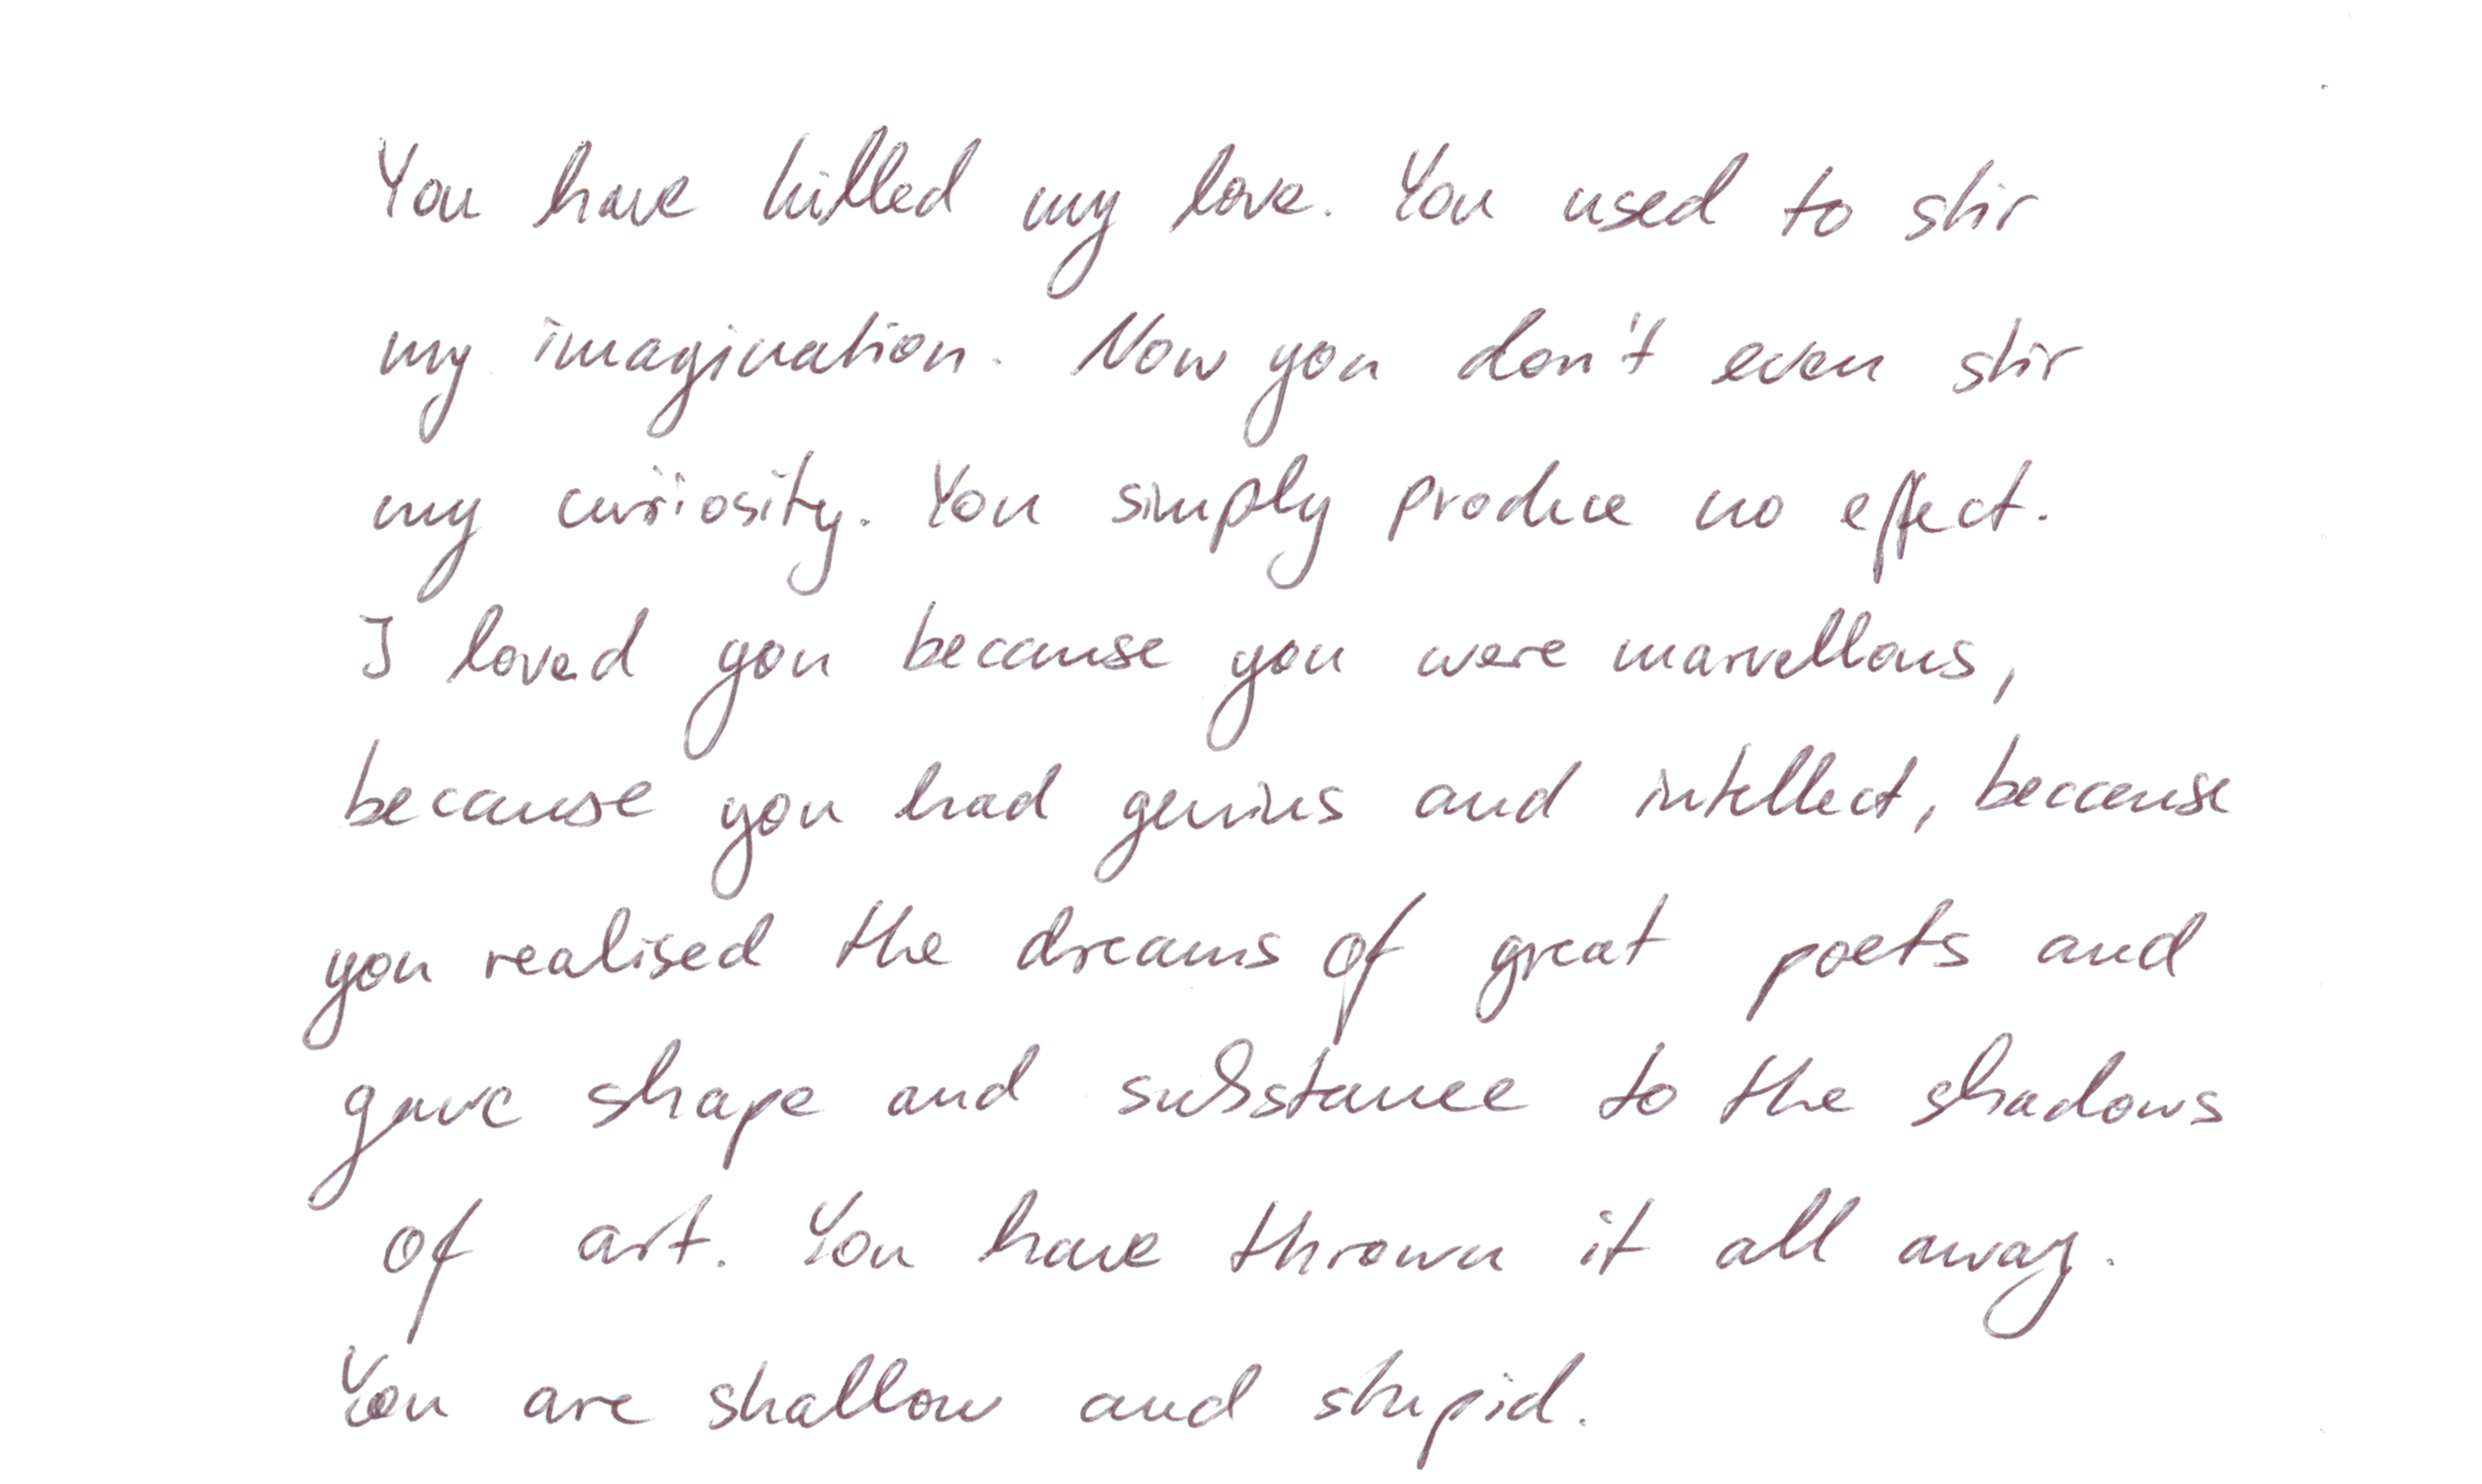 You have killed my love. You used to stir
my imagination. Now you don't even stir
my curiosity. You simply produce no effect.
I loved you because you were marvellous,
because you had genius and intellect, because
you realised the dreams of great poets and
gave shape and substance to the shadows
of art. You have thrown it all away.
You are shallow and stupid.